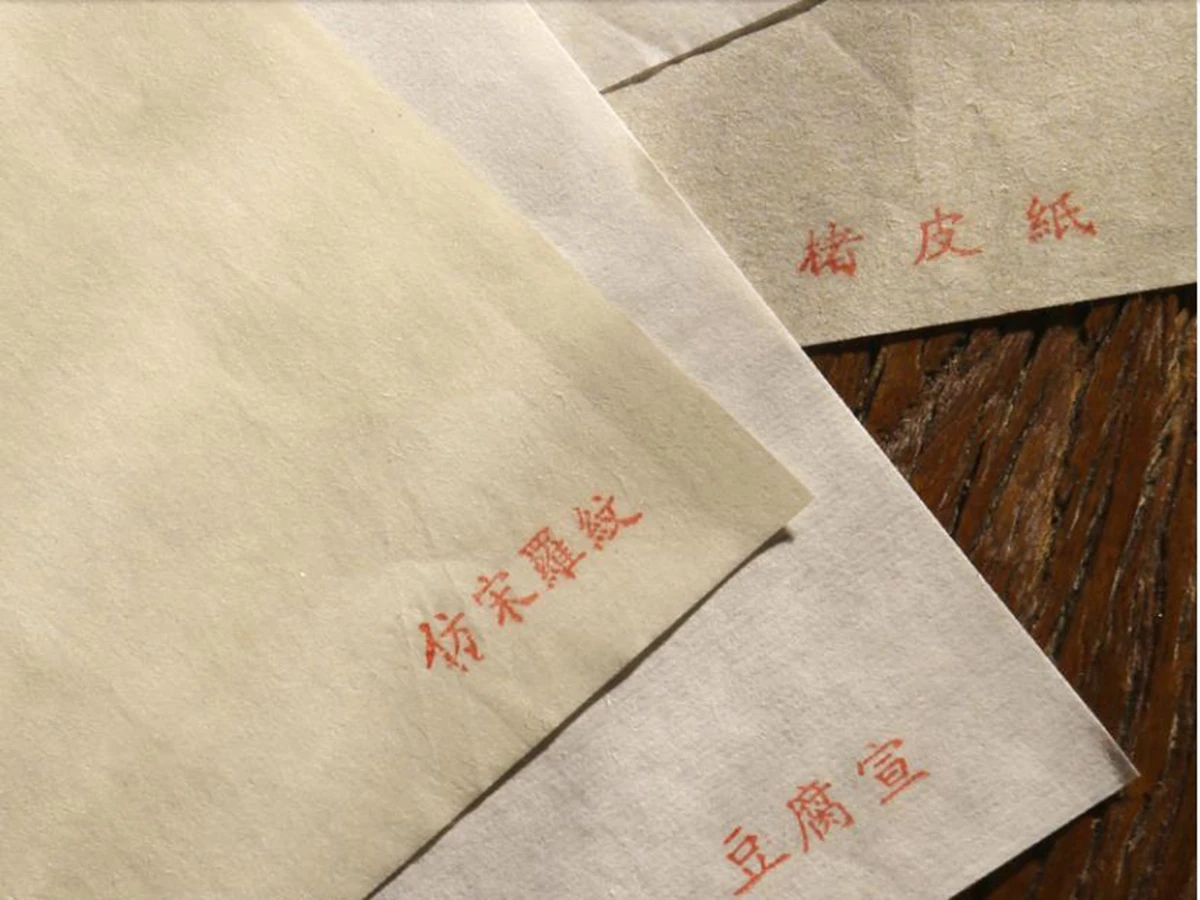 楮皮紙
仿宋羅紋
豆腐宣